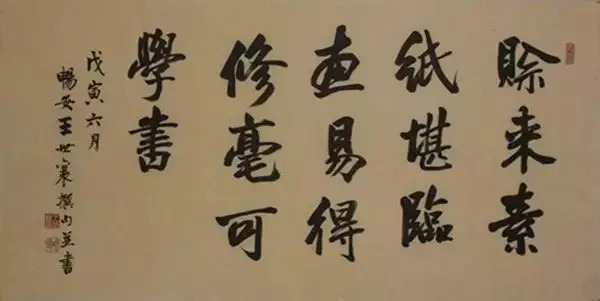 賒来素
紙堪臨
畫易得
修毫可
學書
戊寅六月
暢安王世襄撰句並書